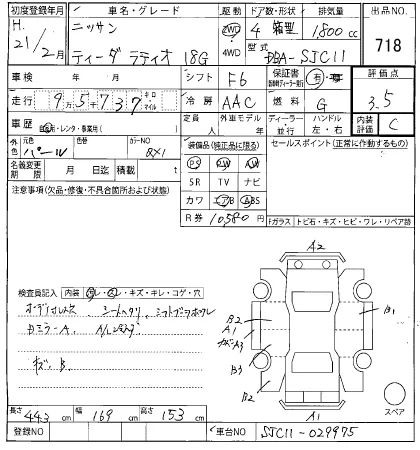 初度登録年月
車名・グレード
駆動
ドア数・形状
排気量
出品NO
H.
21/2月
ニッサン
ティーダ ラティオ 18G
2WD
4WD
4 箱型
1800cc
型式
DBA-SJC11
718
車検 年 月
シフト F6
保証書
有・無
評価点
走行 9万5千737 キロ・マイル
冷房 AAC
燃料 G
3.5
車歴 自家用・レンタ・事業用( )
定員 人
外車モデル 年
ディーラー・並行
ハンドル 左・右
内装評価 C
外色 元色 パール
色替
カラーNO QX1
装備品(純正品に限る)
セールスポイント(正常に作動するもの)
名義変更期限 月 日迄
積載 t
PS PW AW
SR TV ナビ
カワ エアB ABS
R券 10,580
注意事項(欠品・修復・不具合箇所および状態)
Fガラス トビ石・キズ・ヒビ・ワレ・リペア跡
検査員記入 内装 汚レ・スレ・キズ・キレ・コゲ・穴
シートヘタリ
Dミラー A
キズ. B
A2
B2
A1
B1
B3
B2
A1
スペア
長さ 443 cm 幅 169 cm 高さ 153 cm
登録NO
車台NO SJC11-029975